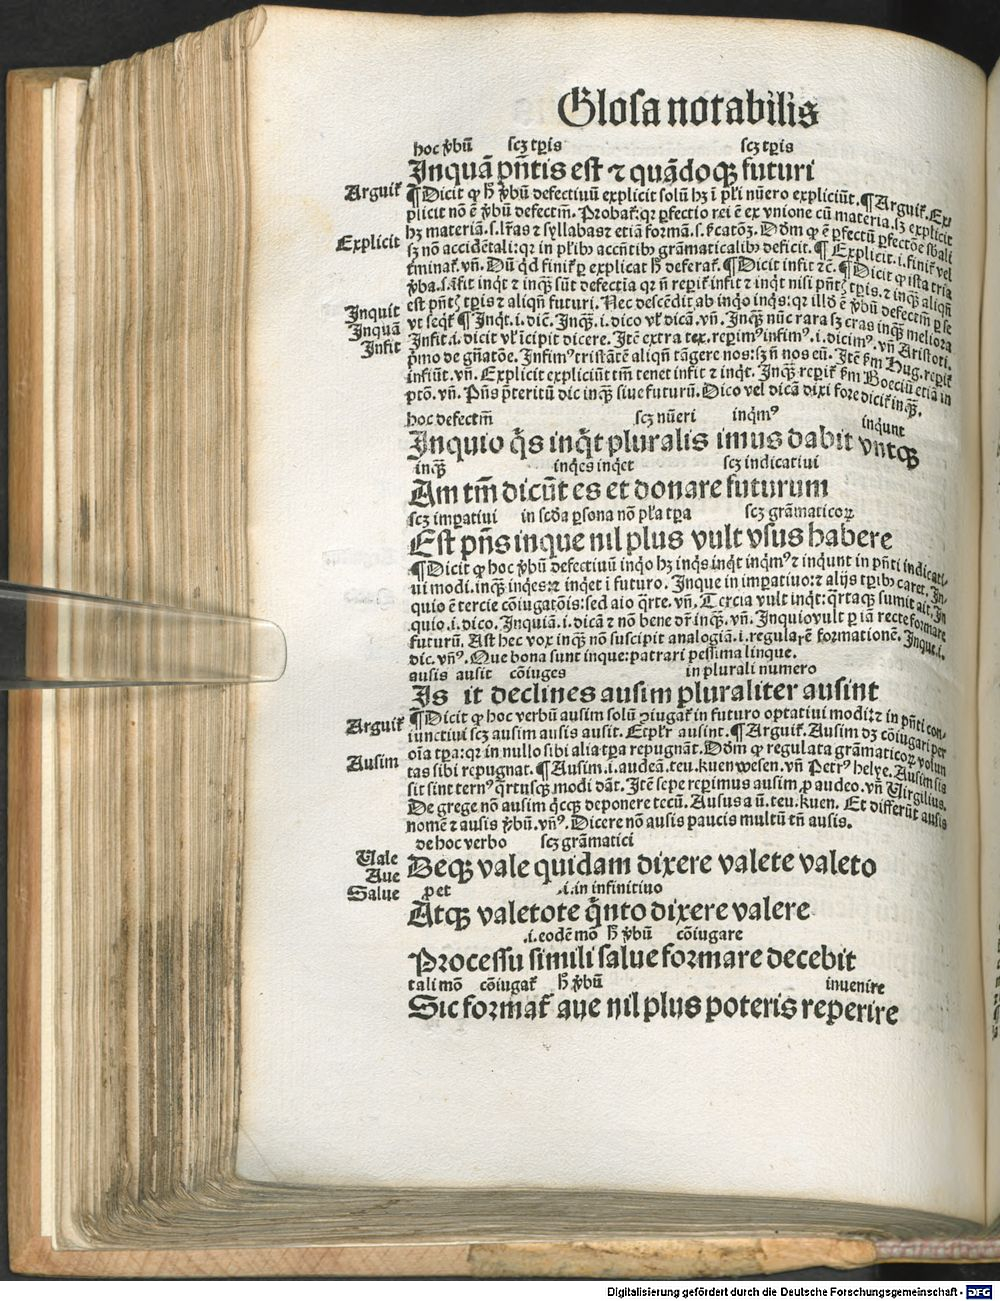 Glosa notabilis
hoc v̓bū scꝫ tꝑis scꝫ tꝑis
Inquā pn̄tis est ⁊ quādoqꝫ futuri
Arguit̄ ¶Dicit ꝙ h̄ v̓bū defectiuū explicit solū hꝫ ī pl̓i nūero expliciūt. ¶Arguit̄. Ex/
plicit nō ē v̓bū defectm̄. Probat̄: qꝛ ꝑfectio rei ē ex vnione cū materia. sꝫ explicit
hꝫ materiā. s. lr̄as ⁊ syllabas ⁊ etiā formā. s. Dōm ꝙ ē ꝑfectū ꝑfectōe sb̄ali
Explicit sꝫ nō accidētali: qꝛ in pl̓ibꝰ accn̄tibꝰ grāmaticalibꝰ deficit. ¶ Explicit. i. finit̄ vel
t̓minat̄. vn̄. Dū qd̓ finit̄ ꝑ explicat h̄ deferat̄. ¶Dicit infit ⁊c̄. ¶Dicit ꝙ ista tria
v̓ba. s. infit inqt ⁊ inqꝫ sūt defectia qꝛ n̄ reꝑit̄ infit ⁊ inqt nisi pn̄tꝭ tꝑis. ⁊ inqꝫ aliqn̄
Inquit est pn̄tꝭ tꝑis ⁊ aliqn̄ futuri. Nec descēdit ab inqo inqs: qꝛ illd̓ ē v̓bū defectm̄ ꝑ se
Inquā vt seqt̄ ¶ Inqt. i. dic̄. Inqꝫ. i. dico vl̓ dicā. vn̄. Inqꝫ nūc rara sꝫ cras inqꝫ meliora
Infit Infit .i. dicit vl̓ īcipit dicere. Itē extra tex. reꝑimꝰ infimꝰ. i. dicimꝰ. vn̄ Aristoti.
pͥmo de gn̄atōe. Infimꝰ tristātē aliqn̄ tāgere nos: sꝫ n̄ nos eū. Itē ẜm Hug. reꝑit̄
infiūt. vn̄. Explicit expliciūt tm̄ tenet infit ⁊ inqt. Inqꝫ reꝑit̄ ẜm Boeciū etiā in
ptō. vn̄. Pn̄s p̄teritū dic inqꝫ siue futurū. Dico vel dicā dixi fore dicit̄ inqꝫ.
hoc defectm̄ scꝫ nūeri inqmꝰ inqunt
Inquio q̄s inq̄t pluralis imus dabit vntqꝫ
inqꝫ inqes inqet scꝫ indicatiui
Am tm̄ dicūt es et donare futurum
scꝫ imꝑatiui in scd̓a ꝑsona nō pl̓a tꝑa scꝫ grāmaticoꝝ
Est pn̄s inque nil plus vult vsus habere
¶Dicit ꝙ hoc v̓bū defectiuū inqo hꝫ inqs inqt inqmꝰ ⁊ inqunt in pn̄ti indicati-
ui modi. inqꝫ inqes: ⁊ inqet ī futuro. Inque in imꝑatiuo: ⁊ alijs tꝑibꝰ caret. In-
quio ē tercie cōiugatōis: sed aio q̄rte. vn̄. Tercia vult inqt: q̄rtaqꝫ sumit ait. In
quio .i. dico. Inquiā. i. dicā ⁊ nō bene dr̄ inqꝫ. vn̄. Inquio vult ꝑ iā recte formare
futurū. Ast hec vox inqꝫ nō suscipit analogiā. i. regularē formationē. Inque. i.
dic. vn̄ꝰ. Que bona sunt inque: patrari pessima linque.
ausis ausit cōiuges in plurali numero
Is it declines ausim pluraliter ausint
Arguit̄ ¶Dicit ꝙ hoc verbū ausim solū ꝯiugat̄ in futuro optatiui modi: ⁊ in pn̄ti con-
iunctiui scꝫ ausim ausis ausit. Et pl̓r ausint. ¶Arguit̄. Ausim dꝫ cōiugari per
oīa tꝑa: qꝛ in nullo sibi alia tꝑa repugnāt. Dōm ꝙ regulata grāmaticoꝝ volun
Ausim tas sibi repugnat. ¶Ausim. i. audeā. teu. kuen wesen. vn̄ Petrꝰ helye. Ausim sis
sit sint ternꝰ q̄rtusqꝫ modi dāt. Itē sepe reperimus ausim ꝓ audeo. vn̄ Virgilius.
De grege nō ausim q̄cqꝫ deponere tecū. Ausus a ū. teu. kuen. Et differūt ausis
nomē ⁊ ausis v̓bū. vn̄ꝰ. Dicere nō ausis paucis multū tn̄ ausis.
de hoc verbo scꝫ grāmatici
Vale Deqꝫ vale quidam dixere valete valeto
Aue
Salue ꝓ et .i. in infinitiuo
Atqꝫ valetote q̄nto dixere valere
.i. eodē mō h̄ v̓bū cōiugare
Processu simili salue formare decebit
tali mō cōiugat̄ h̄ v̓bū inuenire
Sic format̄ aue nil plus poteris reperire
Digitalisierung gefördert durch die Deutsche Forschungsgemeinschaft - DFG